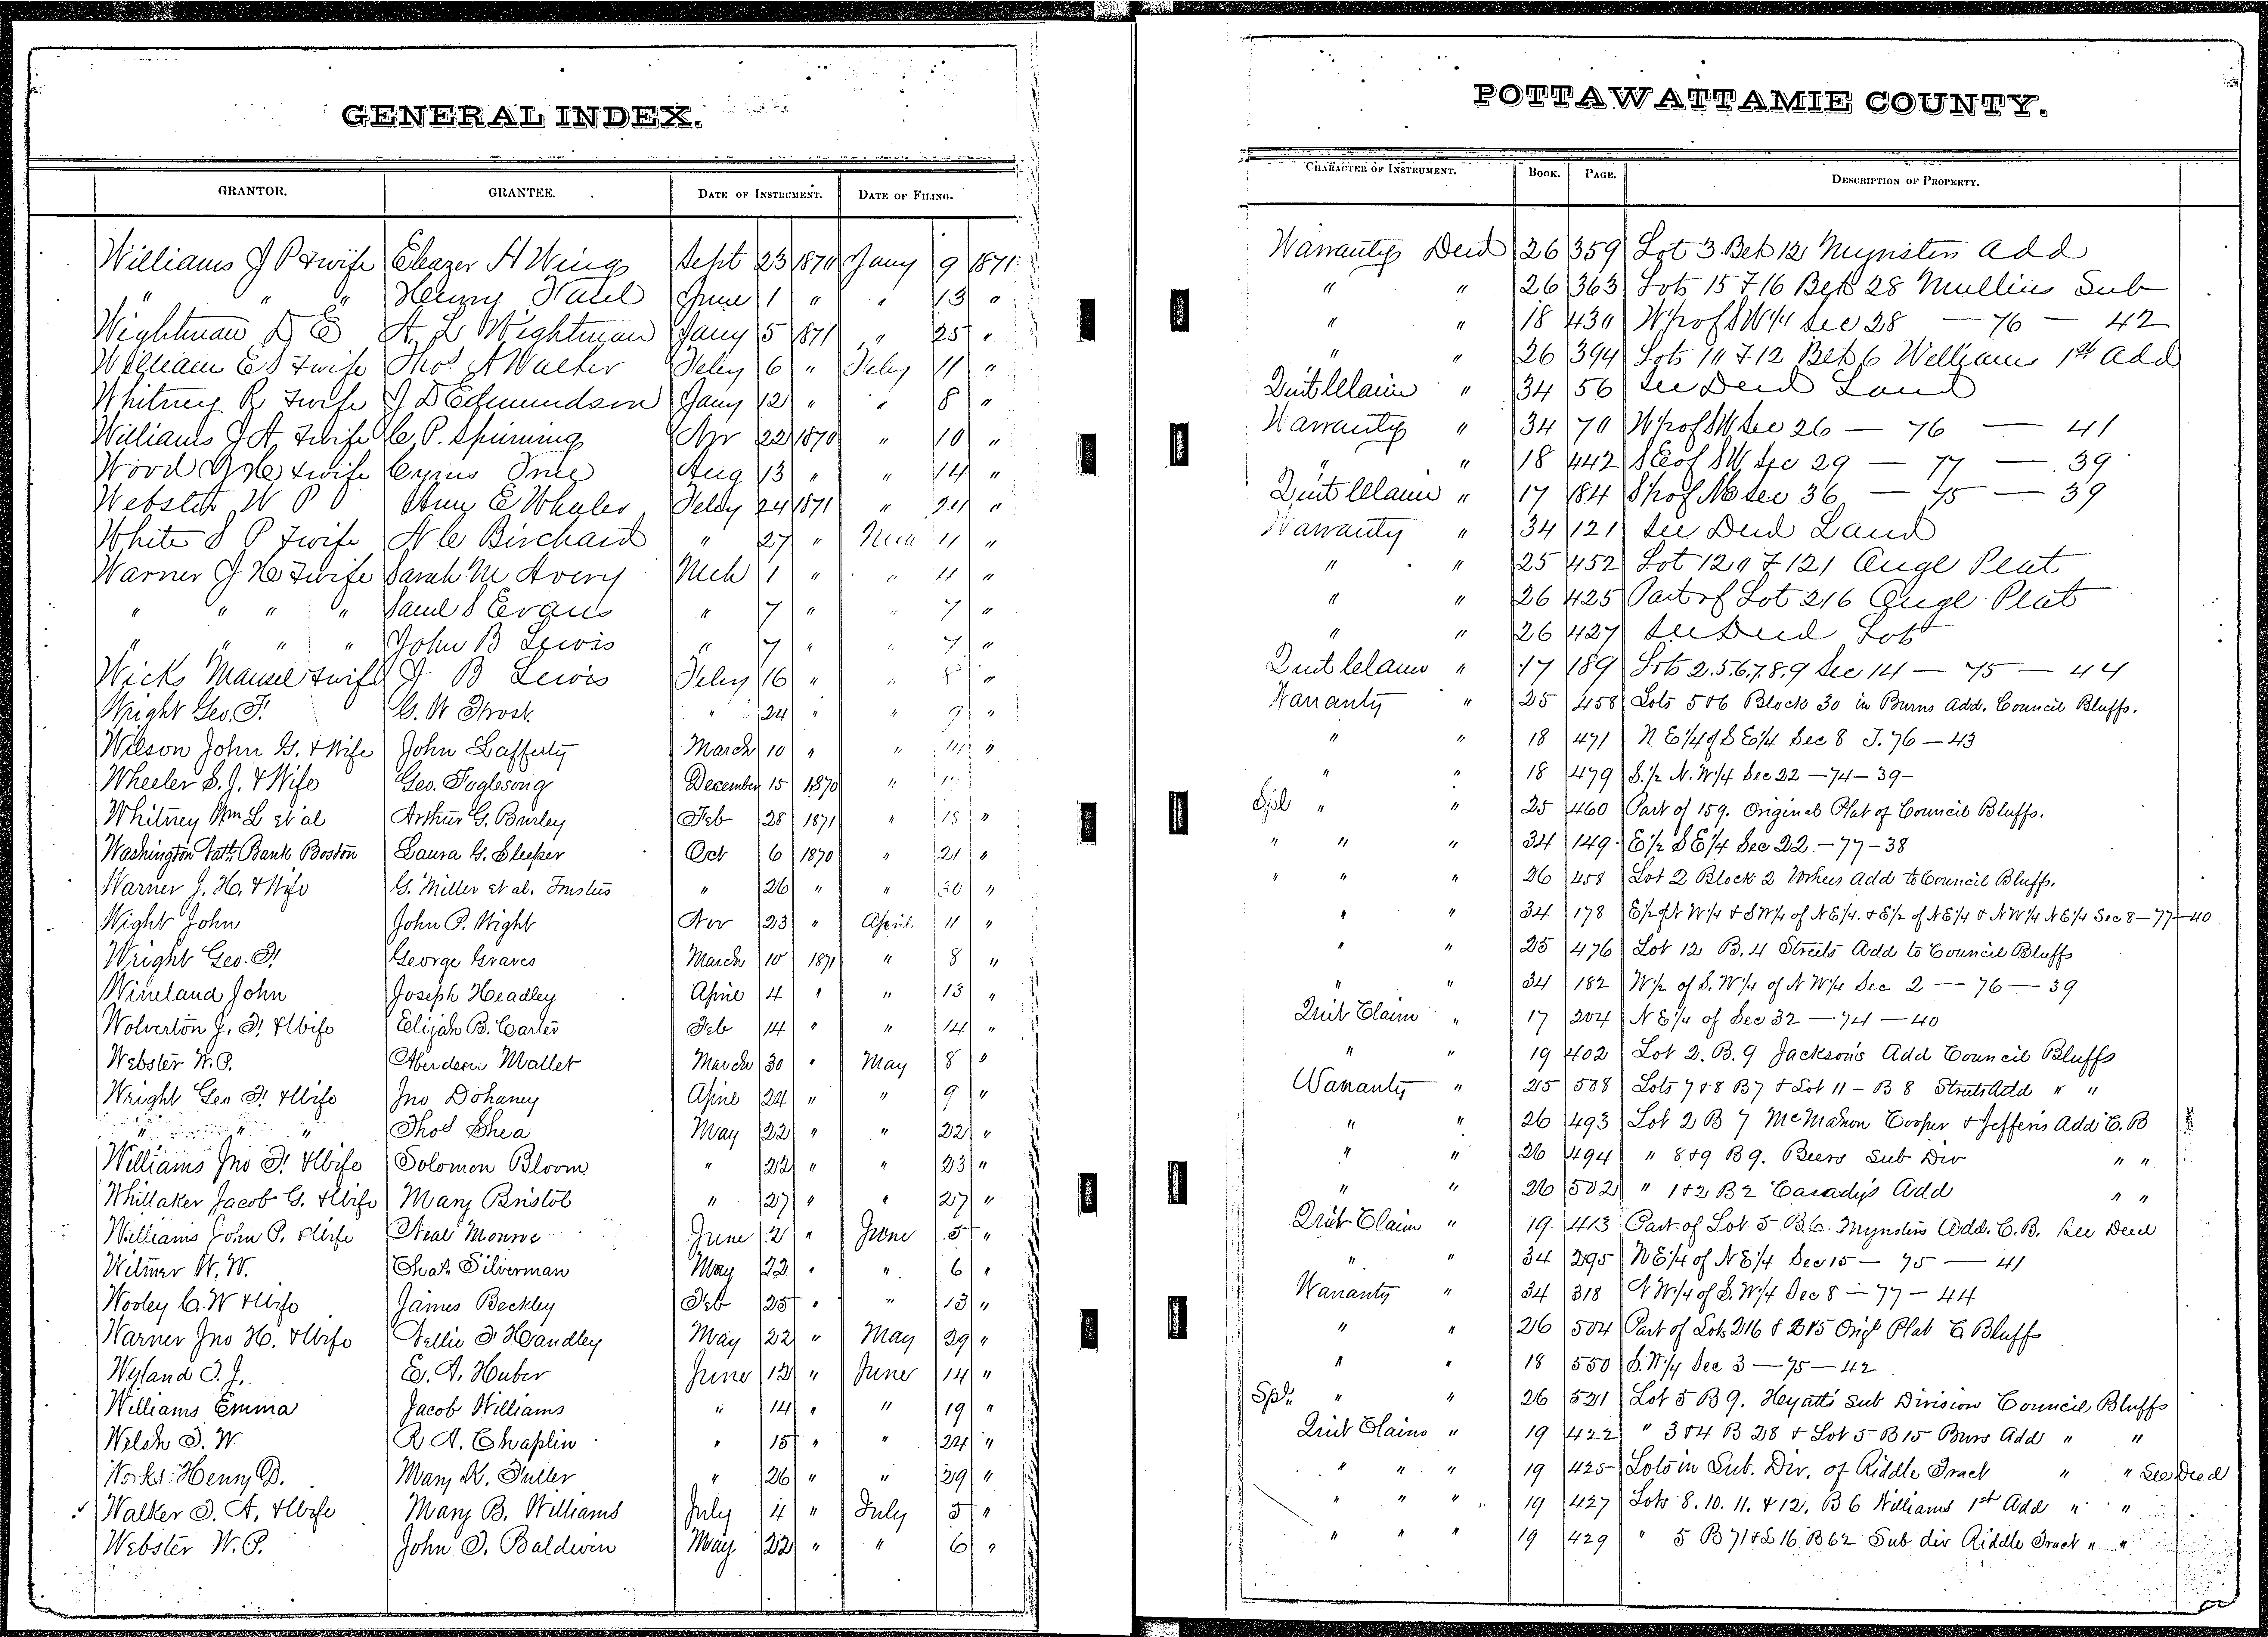 GENERAL INDEX.
GRANTOR. GRANTEE. DATE OF INSTRUMENT. DATE OF FILING.
Williams J P & wife Eleazer H Wing Sept 23 1870 Jany 9 1871
" " " Henry June 1 " " 13 "
Wightman D E A. L Wightman Jany 5 1871 " 25 "
William E S & wife Thos A Walker Feby 6 " Feby 11 "
Whitney R & wife J D Edmundson Jany 12 " " 8 "
Williams J A & wife C. P. Spinning Apr 22 1870 " 10 "
Wood & wife Cyrus Aug 13 " " 14 "
Webster W P Ann E Whaler Feby 24 1871 " 24 "
White S P & wife N C Birchard " 27 " Mch 4 "
Warner J H & wife Sarah M Avery Mch 1 " " 4 "
" " " " Saml S Evans " 7 " " 7 "
" " " " John B Lewis " 7 " " 7 "
Wicks Mansel & wife J. B Lewis Feby 16 " " 8 "
Wright Geo. F. G. W Frost " 24 " " 9 "
Wilson John G. & Wife John Lafferty March 10 " " "
Wheeler S. J. & Wife Geo. Foglesong December 15 1870 "
Whitney Wm L et al Arthur G. Burley Feb 28 1871 " 18 "
Washington Natl. Bank Boston Laura G. Sleeper Oct 6 1870 " 21 "
Warner J. H. & Wife G. Miller et al. Trustees " 26 " " 30 "
Wight John John P. Wight Nov 23 " April 11 "
Wright Geo. F. George Graves March 10 1871 " 8 "
Wineland John Joseph Headley April 4 " " 13 "
Wolverton J. F. & Wife Elijah B. Carter Feb 14 " " 14 "
Webster W. P. Aberdeen Mallet March 30 " May 8 "
Wright Geo. F. & Wife Jno Dohany April 24 " " 9 "
" " " Thos Shea May 22 " " 22 "
Williams Jno P. & Wife Solomon Bloom " 22 " " 23 "
Whittaker Jacob G. & Wife Mary Bristol " 27 " " 27 "
Williams John P. & Wife Neal Monroe June 2 " June 5 "
Witmer W. W. Chas. Silverman May 22 " " 6 "
Wooley C. W & Wife James Beckley Feb 25 " " 13 "
Warner Jno H. & Wife Nellie F. Handley May 22 " May 29 "
Wyland T. J. E. A. Huber June 12 " June 14 "
Williams Emma Jacob Williams " 14 " " 19 "
Welch T. W. R A. Chaplin " 15 " " 24 "
Works Henry D. Mary K. Fuller " 26 " " 29 "
Walker T. A. & Wife Mary B. Williams July 4 " July 5 "
Webster W. P. John T. Baldwin May 22 " " 6 "
POTTAWATTAMIE COUNTY.
CHARACTER OF INSTRUMENT. BOOK. PAGE. DESCRIPTION OF PROPERTY.
Warranty Deed 26 359 Lot 3 Bck 12 Mynsters Add
" " 26 363 Lots 15 & 16 Bck 28 Mullins Sub
" " 18 430 W hf of SW 1/4 Sec 28 — 76 — 42
" " 26 394 Lots 10 & 12 Bck 6 Williams 1st Add
Quit Claim " 34 56 See Deed Land
Warranty " 34 70 W hf of SW Sec 26 — 76 — 41
" " 18 442 SE of SW Sec 29 — 77 — 39
Quit Claim " 17 184 S hf of NE Sec 36 — 75 — 39
Warranty " 34 121 See Deed Land
" " 25 452 Lot 120 & 121 Orign Plat
" " 26 425 Part of Lot 216 Orign Plat
" " 26 427 See Deed Lot
Quit Claim " 17 189 Lots 2.5.6.7.8.9 Sec 14 — 75 — 44
Warranty " 25 458 Lots 5 & 6 Block 30 in Burns Add. Council Bluffs.
" " 18 471 N E 1/4 of S E 1/4 Sec 8 T. 76 — 43
" " 18 479 S. 1/2 N. W 1/4 Sec 22 — 74 — 39 —
Spl " " 25 460 Part of 159. Original Plat of Council Bluffs.
" " " 34 149 E 1/2 S E 1/4 Sec 22 — 77 — 38
" " " 26 458 Lot 2 Block 2 Add to Council Bluffs.
" " 34 178 E 1/2 of N W 1/4 & S W 1/4 of N E 1/4. & E 1/2 of N E 1/4 & N W 1/4 N E 1/4 Sec 8 — 77 — 40
" " 25 476 Lot 12 B. 4 Streets Add to Council Bluffs
" " 34 182 W 1/2 of S. W 1/4 of N W 1/4 Sec 2 — 76 — 39
Quit Claim " 17 204 N E 1/4 of Sec 32 — 74 — 40
" " 19 402 Lot 2. B. 9 Jackson's Add Council Bluffs
Warranty " 25 508 Lots 7 & 8 B 7 & Lot 11 — B 8 Streets Add " "
" " 26 493 Lot 2 B 7 McMahon Cooper & Jefferis Add C. B
" " 26 494 " 8 & 9 B 9. Beers Sub Div " "
" " 26 502 " 1 & 2 B 2 Casady's Add " "
Quit Claim " 19 413 Part of Lot 5 B 6. Mynsters Add. C. B. See Deed
" " 34 295 N E 1/4 of N E 1/4 Sec 15 — 75 — 41
Warranty " 34 318 N W. 1/4 of S. W 1/4 Sec 8 — 77 — 44
" " 26 504 Part of Lots 216 & 215 Origl Plat C Bluffs
" " 18 550 S. W 1/4 Sec 3 — 75 — 42
Spl. " " 26 521 Lot 5 B 9. Hyatt's Sub Division Council Bluffs
Quit Claim " 19 422 " 3 & 4 B 28 & Lot 5 B 15 Burs Add " "
" " " 19 425 Lots in Sub. Div. of Riddle Tract " " See Deed
" " " 19 427 Lots 8. 10. 11. & 12. B 6 Williams 1st Add " "
" " " 19 429 " 5 B 71 & L 16 B 62 Sub div Riddle Tract " "